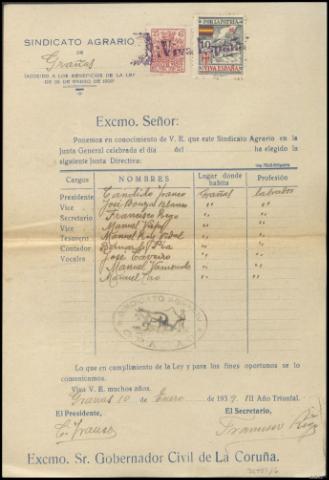 SINDICATO AGRARIO
DE
Grañas
(ACOGIDO A LOS BENEFICIOS DE LA LEY
DE 28 DE ENERO DE 1906)
POR LA PATRIA
10
VIVA ESPAÑA
Excmo. Señor:
Ponemos en conocimiento de V. E. que este Sindicato Agrario en la
Junta General celebrada el día del ha elegido la
siguiente Junta Directiva:
Cargos NOMBRES Lugar donde habita Profesión
Presidente Cándido Franco Grañas labrador
Vice José Bouza Blanco " "
Secretario Francisco Rego " "
Vice Manuel " "
Tesorero Manuel Vidal " "
Contador Bernardo Pía " "
Vocales José " "
Manuel " "
Manuel " "
SINDICATO AGRARIO
Lo que en cumplimiento de la Ley y para los fines oportunos se lo
comunicamos.
Viva V. E. muchos años.
Grañas 10 de Enero de 1939. III Año Triunfal.
El Presidente, El Secretario,
C. Franco Francisco Rego
Excmo. Sr. Gobernador Civil de La Coruña.